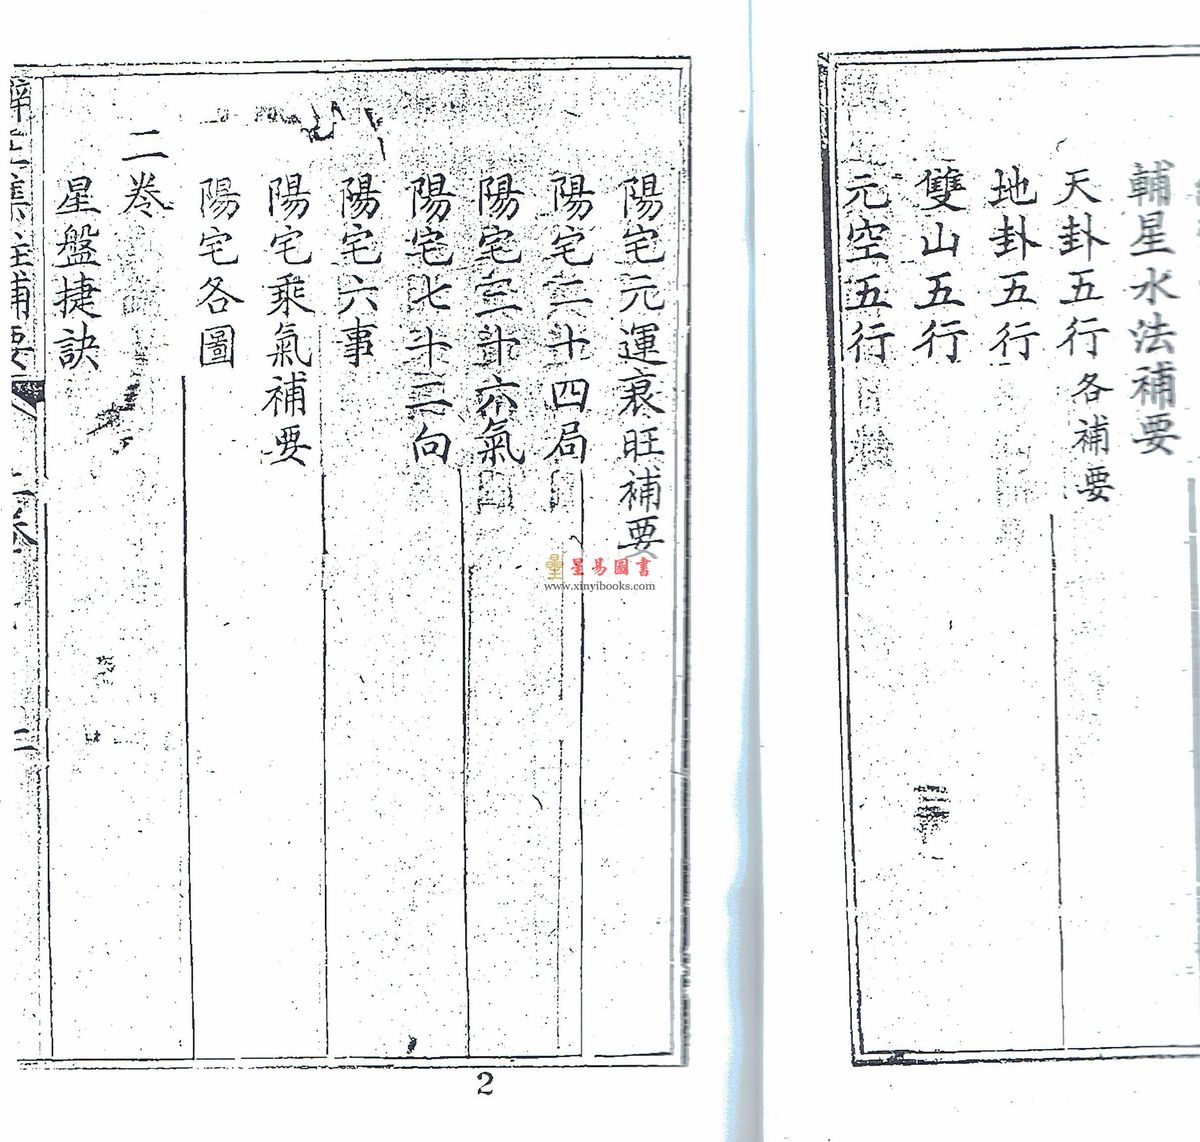 輔星水法補要
天卦五行各補要
地卦五行
雙山五行
元空五行
陽宅元運衰旺補要
陽宅二十四局
陽宅三十六氣
陽宅七十二向
陽宅六事
陽宅乘氣補要
陽宅各圖
二卷
星盤捷訣
集註補要
二
星易圖書
www.xinyibooks.com
2